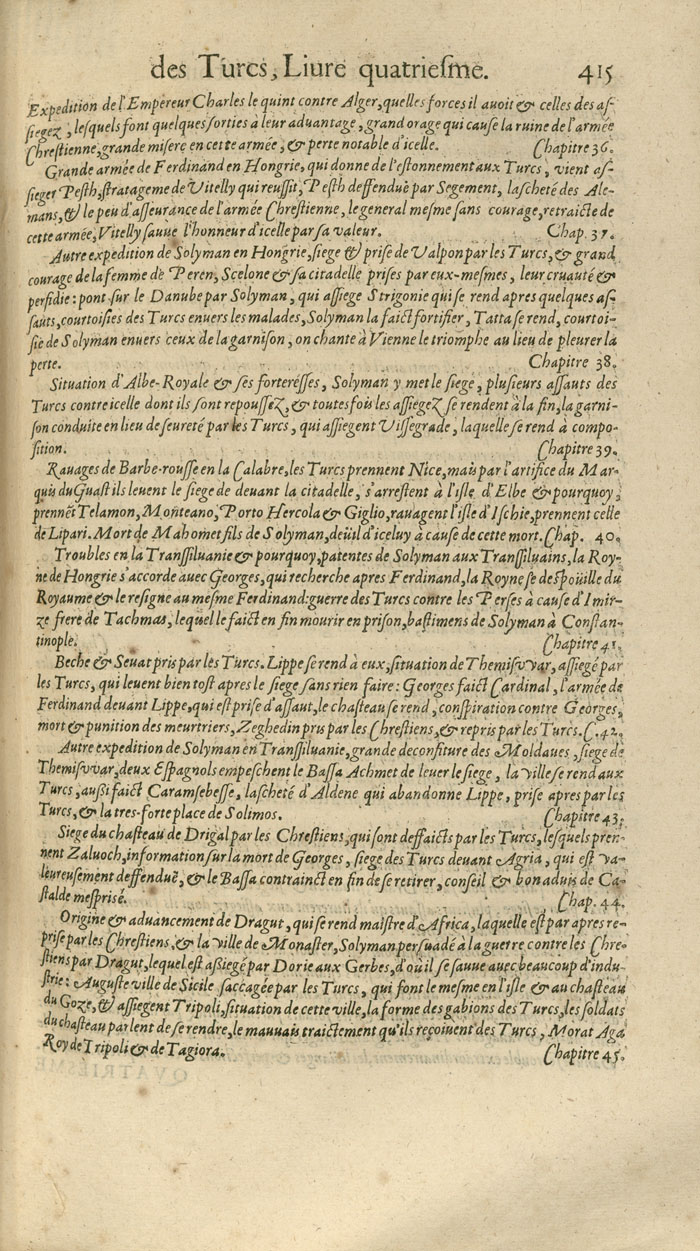 des Turcs, Liure quatriesme. 415
Expedition de l'Empereur Charles le quint contre Alger, quelles forces il auoit & celles des as-
siegez, lesquels font quelques sorties à leur aduantage, grand orage qui cause la ruine de l'armée
Chrestienne, grande misere en cette armée, & perte notable d'icelle. Chapitre 36.
Grande armée de Ferdinand en Hongrie, qui donne de l'estonnement aux Turcs, vient as-
sieger Pesth, stratageme de Vitelly qui reussit, Pesth deffenduë par Segement, lascheté des Ale-
mans, & le peu d'asseurance de l'armée Chrestienne, le general mesme sans courage, retraicte de
cette armée, Vitelly sauue l'honneur d'icelle par sa valeur. Chap. 37.
Autre expedition de Solyman en Hongrie, siege & prise de Valpon par les Turcs, & grand
courage de la femme de Peren, Scelone & sa citadelle prises par eux-mesmes, leur cruauté &
perfidie: pont sur le Danube par Solyman, qui assiege Strigonie qui se rend apres quelques as-
sauts, courtoisies des Turcs enuers les malades, Solyman la faict fortifier, Tatta se rend, courtoi-
sie de Solyman enuers ceux de la garnison, on chante à Vienne le triomphe au lieu de pleurer la
perte. Chapitre 38.
Situation d'Albe-Royale & ses forteresses, Solyman y met le siege, plusieurs assauts des
Turcs contre icelle dont ils sont repoussez, & toutesfois les assiegez se rendent à la fin, la garni-
son conduite en lieu de seureté par les Turcs, qui assiegent Vissegrade, laquelle se rend à compo-
sition. Chapitre 39.
Rauages de Barbe-rousse en la Calabre, les Turcs prennent Nice, mais par l'artifice du Mar-
quis du Guast ils leuent le siege de deuant la citadelle, s'arrestent à l'isle d'Elbe & pourquoy,
prennēt Telamon, Monteano, Porto Hercola & Giglio, rauagent l'isle d'Ischie, prennent celle
de Lipari. Mort de Mahomet fils de Solyman, deüil d'iceluy à cause de cette mort. Chap. 40.
Troubles en la Transsiluanie & pourquoy, patentes de Solyman aux Transsiluains, la Roy-
ne de Hongrie s'accorde auec Georges, qui recherche apres Ferdinand, la Royne se despoüille du
Royaume & le resigne au mesme Ferdinand: guerre des Turcs contre les Perses à cause d'Imir-
ze frere de Tachmas, lequel le faict en fin mourir en prison, bastimens de Solyman à Constan-
tinople. Chapitre 41.
Beche & Seuat pris par les Turcs. Lippe se rend à eux, situation de Themisvvar, assiegé par
les Turcs, qui leuent bien tost apres le siege sans rien faire: Georges faict Cardinal, l'armée de
Ferdinand deuant Lippe, qui est prise d'assaut, le chasteau se rend, conspiration contre Georges,
mort & punition des meurtriers, Zeghedin pris par les Chrestiens, & repris par les Turcs. C. 42.
Autre expedition de Solyman en Transsiluanie, grande deconfiture des Moldaues, siege de
Themisvvar, deux Espagnols empeschent le Bassa Achmet de leuer le siege, la ville se rend aux
Turcs, aussi faict Caramsebesse, lascheté d'Aldene qui abandonne Lippe, prise apres par les
Turcs, & la tres-forte place de Solimos. Chapitre 43.
Siege du chasteau de Drigal par les Chrestiens, qui sont deffaicts par les Turcs, lesquels pren-
nent Zaluoch, information sur la mort de Georges, siege des Turcs deuant Agria, qui est va-
leureusement deffenduë, & le Bassa contrainct en fin de se retirer, conseil & bon aduis de Ca-
stalde mesprisé. Chap. 44.
Origine & aduancement de Dragut, qui se rend maistre d'Africa, laquelle est par apres re-
prise par les Chrestiens, & la ville de Monaster, Solyman persuadé à la guerre contre les Chre-
stiens par Dragut, lequel est assiegé par Dorie aux Gerbes, d'où il se sauue auec beaucoup d'indu-
strie: Auguste ville de Sicile saccagée par les Turcs, qui font le mesme en l'isle & au chasteau
du Goze, & assiegent Tripoli, situation de cette ville, la forme des gabions des Turcs, les soldats
du chasteau parlent de se rendre, le mauuais traictement qu'ils reçoiuent des Turcs, Morat Aga
Roy de Tripoli & de Tagiora. Chapitre 45.